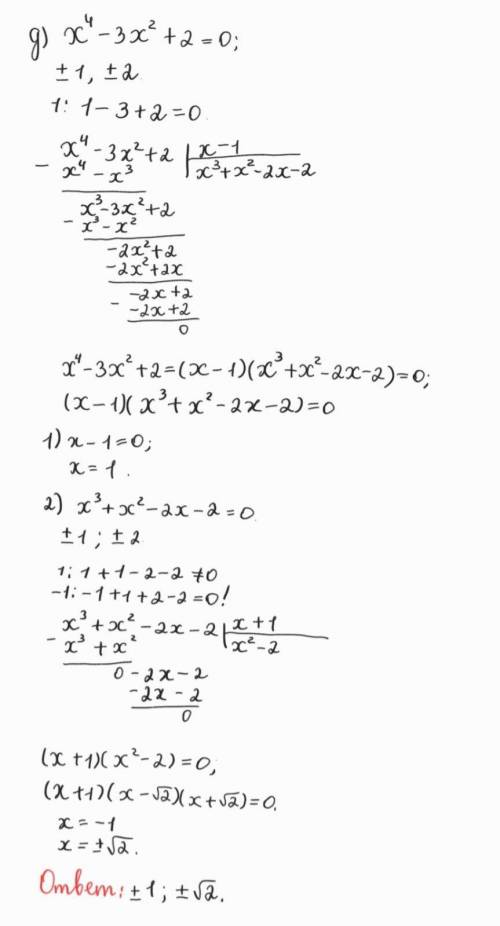 д) x⁴ - 3x² + 2 = 0;
±1, ±2
1: 1 - 3 + 2 = 0
x⁴ - 3x² + 2 | x - 1
- x⁴ - x³ | x³ + x² - 2x - 2
x³ - 3x² + 2
- x³ - x²
-2x² + 2
-2x² + 2x
-2x + 2
- -2x + 2
0
x⁴ - 3x² + 2 = (x - 1)(x³ + x² - 2x - 2) = 0;
(x - 1)(x³ + x² - 2x - 2) = 0
1) x - 1 = 0;
x = 1.
2) x³ + x² - 2x - 2 = 0
±1; ±2
1: 1 + 1 - 2 - 2 ≠ 0
-1: -1 + 1 + 2 - 2 = 0!
x³ + x² - 2x - 2 | x + 1
- x³ + x² | x² - 2
0 - 2x - 2
-2x - 2
0
(x + 1)(x² - 2) = 0;
(x + 1)(x - √2)(x + √2) = 0.
x = -1
x = ±√2.
Ответ: ±1; ±√2.